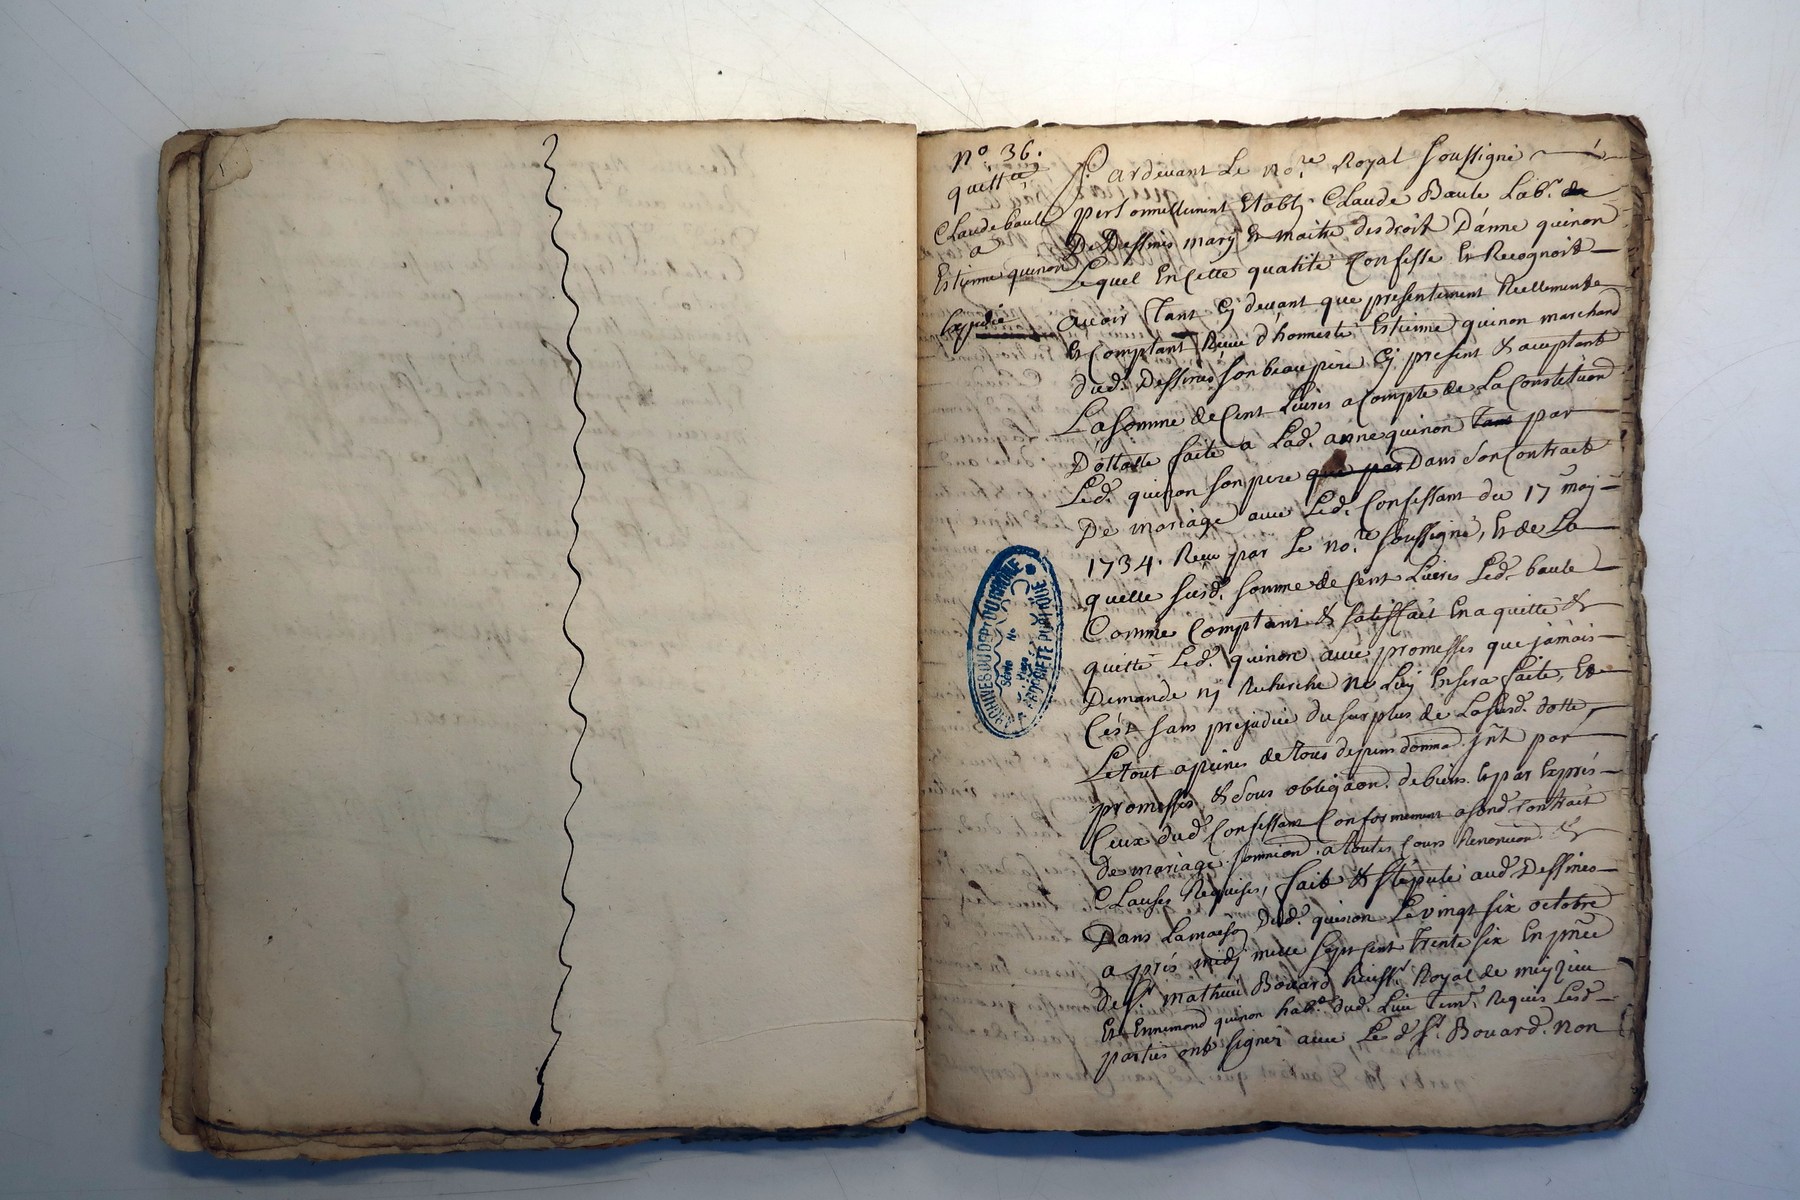 n.º 36.
quittce
Claude baule
a
Estienne quinon
Expedié
Pardevant Le no.re Royal soussigné
personnellement Etably Claude Baule Lab.r de
De Dessines mary Et maitre des droit D'anne quinon
Lequel En cette qualité Confesse Et Recognoit
avoir Tant cy devant que presentement Reellement
Et Comptant Receu d'honneste Estienne quinon marchand
dud. Dessines son beau pere cy present & acceptant
La somme de Cent Livres a compte de La Constitûon
Dottalle faite a Lad. anne quinon Tant par
Led. quinon son pere que par Dans son Contract
De mariage avec Led. Confessant du 17 may
1734. Receu par Le no.re soussigné, Et de La
quelle susd. somme de Cent Livres Led. baule
Comme Comptant & satisffait En a quitté &
quitte Led. quinon avec promesses que jamais
Demande ny Recherche Ne Luy En sera faite, Et
C'ést sans prejudice du surplus de La susd. dotte,
Le tout a peines de tous depens domma. jnt par
promesses & sous obligâon. de biens Et par Exprés
Ceux dud. Confessant Conformement a sond. Contrait
de mariage. somiôn. a toutes Cours Renonciôn. &
Clauses Requises, fait & stipulé aud. Dessines
Dans La maison Dud. quinon Le vingt six octobre
aprés midy mille sept cent Trente six En pnce
De s.r mathieu Bouard huiss.r Royal de meyzieu
Et Ennemond quinon hab.t dud. Lieu Tem. Requis Lesd.
parties ont signés avec Le d s.r Bouard. non
ARCHIVES DU DEPT DU RHONE
Série No
PROPRIÉTÉ PUBLIQUE